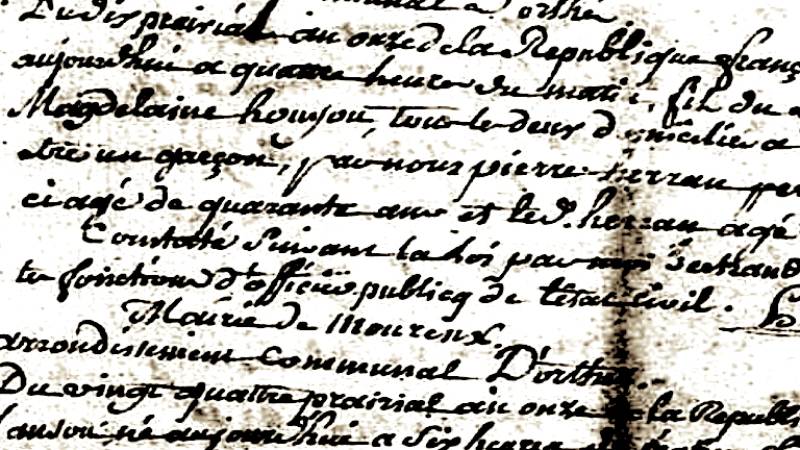 communal d'orthe
Du dix prairial an onze de la Republique franç
aujourd'hui a quatre heure du matin, fils du
Magdelaine houjou, tous le deux domicilies a
etre un garçon, par nous pierre herran
ci agé de quarante ans et le d. herran agé
Constaté Suivant la Loi par moi Bertrand
les fonctions d'officier publicq de l'etat Civil.
Mairie de Mourenx.
arrondissement Communal D'orthez.
Du vingt quatre prairial an onze de la Republi
né aujourd'hui a Six heures